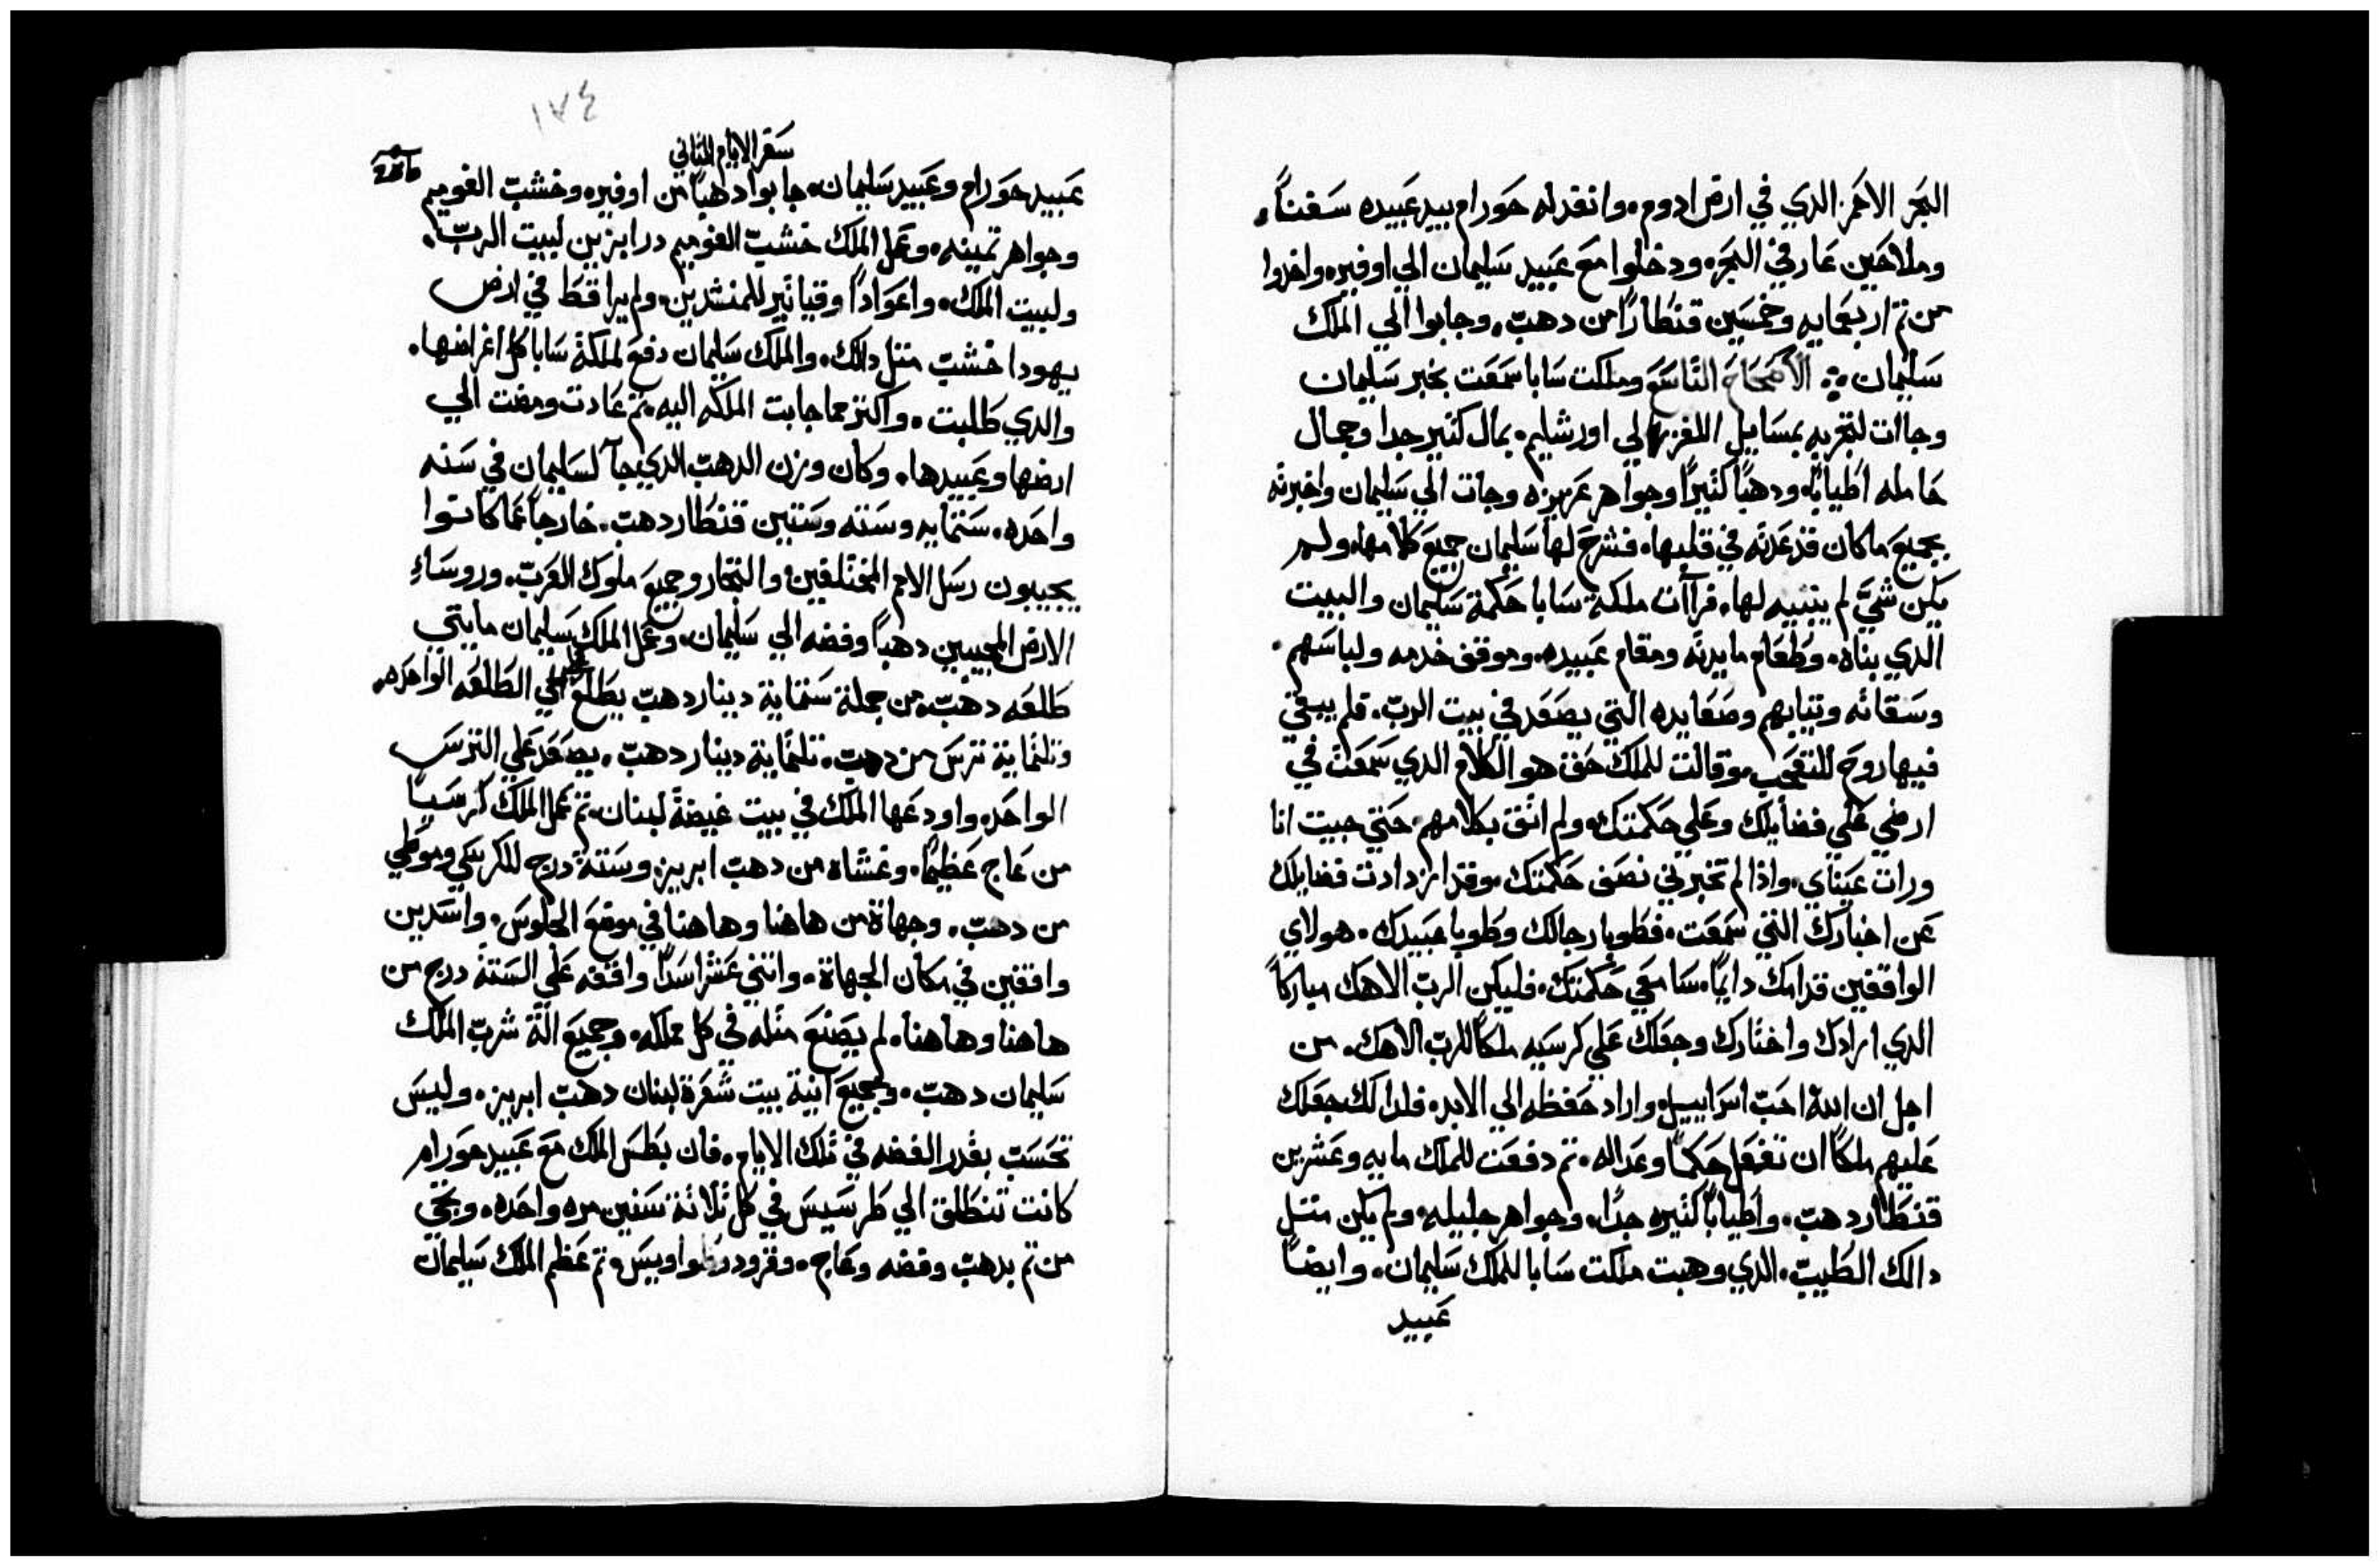 البحر الاحمر الدي في ارض ادوم. وانفد له حورام بيد عبيده سفنًا.
وملاحين عارفي البحر. ودخلوا مع عبيد سليمان الي اوفيره واخدوا
من تم اربعمايه وخمسين قنطارًا من دهب. وجابوا الي الملك
سليمان. الاصحاح التاسع وملكت سابا سمعت بخبر سليمان
وجاات لتجربه بمسايل اللغز الي اورشليم. بمال كتير جدا وجمال
حامله اطيابًا. ودهبًا كتيرًا وجواهر عزيزه وجات الي سليمان واخبرته
بجميع ما كان قد عدته في قلبها. فشرح لها سليمان جميع كلامها. ولم
يكن شيّ لم يتبيه لها. فراات ملكة سابا حكمة سليمان والبيت
الدي بناه. وطعام مايدته ومقام عبيده. وموقف خدمه ولباسهم.
وسقاته وتيابهم وصعايده التي يصعد في بيت الرب. فلم يبقي
فيها روح للتعجب. وقالت للملك حق هو الكلام الدي سمعت في
ارضي علي فضايلك وعلي حكمتك. ولم اتق بكلامهم. حتي جيت انا
ورات عيناي. وادا لم تخبرني نصف حكمتك. وقد ازدادت فضايلك
عن اخبارك التي سمعت. فطوبا رجالك وطوبا عبيدك. هولاي
الواقفين قدامك دايمًا. سامعي حكمتك. فليكن الرب الاهك مباركًا
الدي ارادك واختارك وجعلك علي كرسيه ملكًا للرب الاهك. من
اجل ان الله احب اسراييل. واراد حفظه الي الابد. فلدالك جعلك
عليهم ملكًا ان تفعل حكمًا وعداله. تم دفعت للملك مايه وعشرين
قنطار دهب. واطيابًا كتيره جدًا. وجواهر جليله. ولم يكن متل
دالك الطيب. الدي وهبت ملكت سابا للملك سليمان. وايضًا
عبيد
١٧٤
سفر الايام التاني
عبيد حورام وعبيد سليمان. جابوا دهبًا من اوفيره وخشب الغوميم
وجواهر تمينه. وعمل الملك خشب الغوميم درابزين لبيت الرب.
ولبيت الملك. واعوادًا وقياتير للمنشدين. ولم يرا قط في ارض
يهودا خشب متل دالك. والملك سليمان دفع لملكة سابا كل اغراضها.
والدي طلبت. واكتر مما جابت الملكه اليه. تم عادت ومضت الي
ارضها وعبيدها. وكان وزن الدهب الدي جآ لسليمان في سنه
واحده. ستمايه وسته وستين قنطار دهب. خارجًا عما كانوا
يجيبون رسل الامم المختلفين والتجار وجميع ملوك العرب. وروساءِ
الارض المجيبين دهبًا وفضه الي سليمان. وعمل الملك سليمان مايتي
طلعه دهب. من جملة ستماية دينار دهب يطلع علي الطلعه الواحده.
وتلتماية ترس من دهب. تلتماية دينار دهب. يصعد علي الترس
الواحد. واودعها الملك في بيت غيضة لبنان. تم عمل الملك كرسيًا
من عاج عظيمًا. وغشاه من دهب ابريز. وستة درج للكرسي وموطي
من دهب. وجهاة من هاهنا وهاهنا في موضع الجلوس. واسدين
واقفين في مكان الجهاة. واتني عشر اسدًا واقفه علي الستة درج من
هاهنا وهاهنا. لم يصنع متله في كل مملكه. وجميع الة شرب الملك
سليمان دهب. وجميع انية بيت شعرة لبنان دهب ابريز. وليس
تحسب بقدر الفضه في تلك الايام. فان بطس الملك مع عبيد حورام
كانت تنطلق الي طرسيس في كل تلاتة سنين مره واحده. وتجي
من تم بدهب وفضه وعاج. وقرود وطواويس. تم عظم الملك سليمان